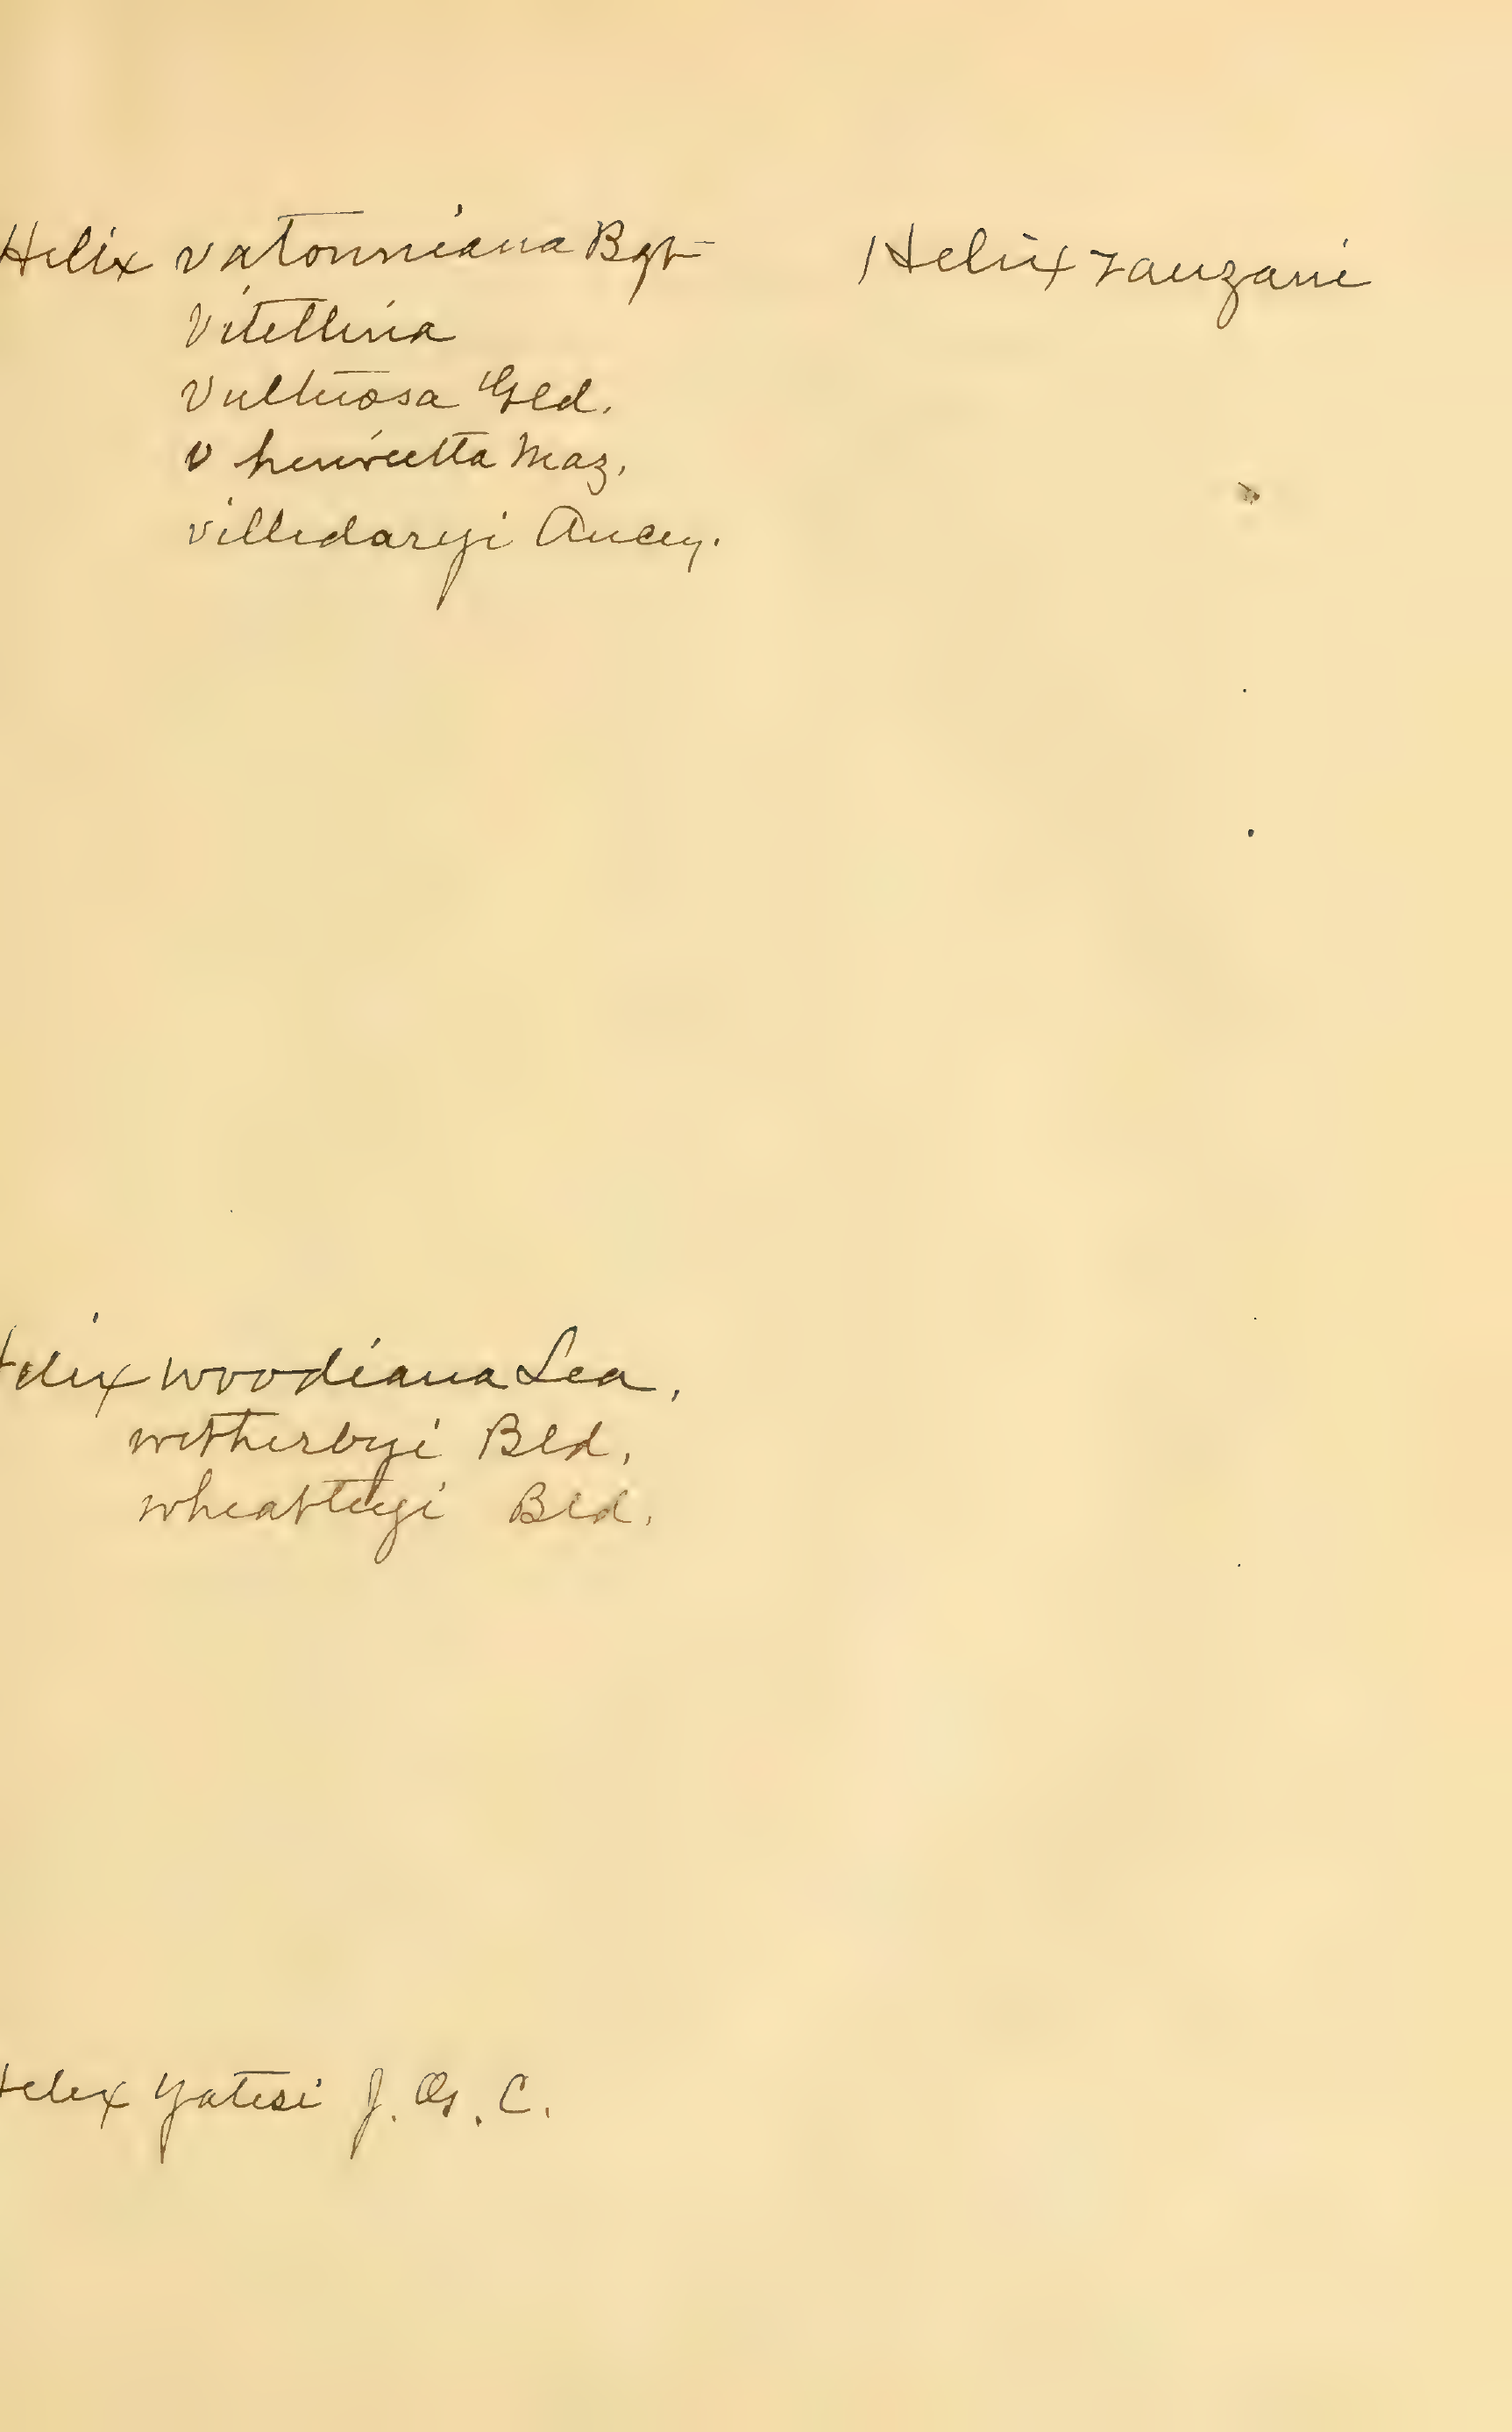 Helix vatonniana Bgt
Vitellina
Vultuosa Gld.
v henrietta Maz.
villedaryi Ancey.
Helix woodiana Lea.
wetherbyi Bld.
wheatleyi Bld.
Helix yatesi J. G. C.
Helix zanzani